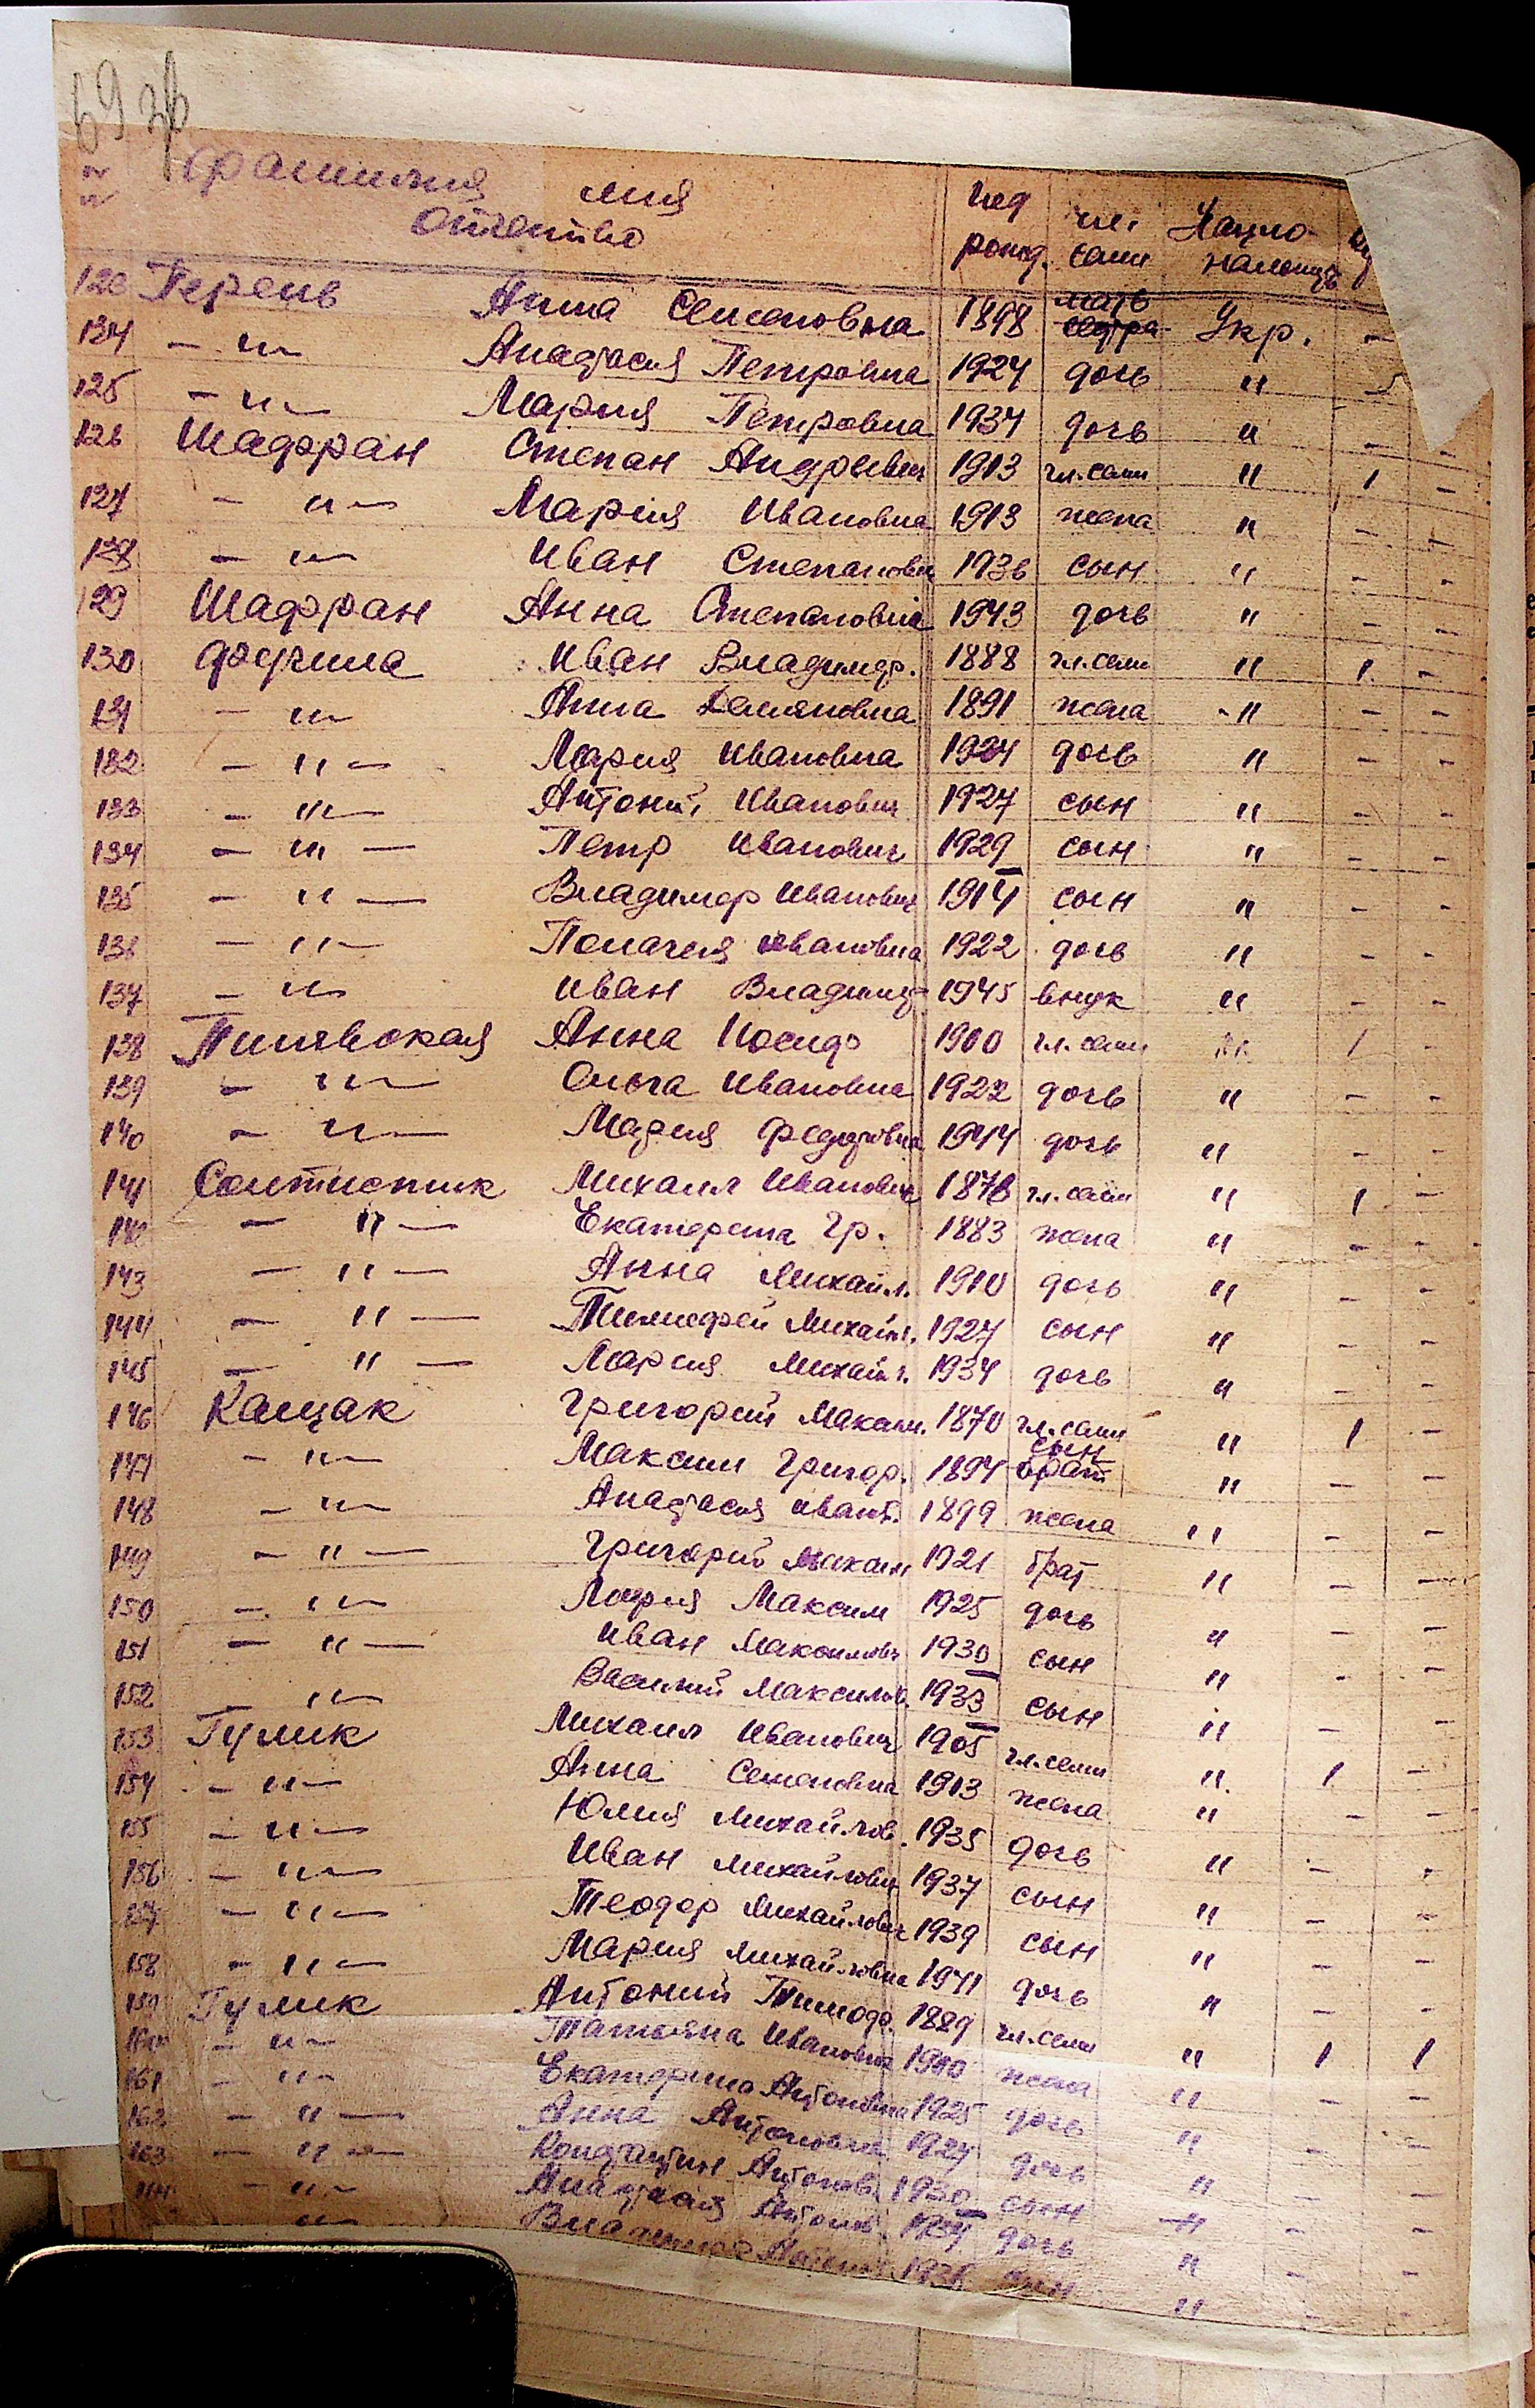 69 зв
№ Фамилия имя отчество год рожд. чл. семи Нацио- нальность
123 Герень Анна Семеновна 1898 мать сестра Укр. -
124 - " - Анастасия Петровна 1924 дочь "
125 - " - Мария Петровна 1934 дочь " - -
126 Шафран Степан Андреевич 1913 гл. семи " 1 -
127 - " - Мария Ивановна 1913 жена " - -
128 - " - Иван Степанович 1936 сын " - -
129 Шафран Анна Степановна 1943 дочь " - -
130 Фучила Иван Владимир. 1888 гл. семи " 1 -
131 - " - Анна Демяновна 1891 жена " - -
132 - " - Мария Ивановна 1924 дочь " - -
133 - " - Антоний Иванович 1927 сын " - -
134 - " - Петр Иванович 1929 сын " - -
135 - " - Владимир Иванович 1914 сын " - -
136 - " - Полагея Ивановна 1922 дочь " - -
137 - " - Иван Владимир 1945 внук " - -
138 Пилявская Анна Иосифо 1900 гл. семи " 1 -
139 - " - Ольга Ивановна 1922 дочь " - -
140 - " - Мария Федоровна 1944 дочь " - -
141 Михаил Иванович 1876 гл. семи " 1 -
142 - " - Екатерина Гр. 1883 жена " - -
143 - " - Анна Михайл. 1910 дочь " - -
144 - " - Тимофей Михайл. 1927 сын " - -
145 - " - Мария Михайл. 1934 дочь " - -
146 Кащак Григорий Максим. 1870 гл. семи " 1 -
147 - " - Максим Григор. 1894 сын брат " - -
148 - " - Анастасия Иван. 1899 жена " - -
149 - " - Григорий Максим 1921 брат " - -
150 - " - Мария Максим 1925 дочь " - -
151 - " - Иван Максимович 1930 сын " - -
152 - " - Василий Максимов. 1933 сын " -
153 Гулик Михаил Иванович 1905 гл. семи " 1 -
154 - " - Анна Семеновна 1913 жена " - -
155 - " - Юлия Михайлов. 1935 дочь " - -
156 - " - Иван Михайлович 1937 сын " - -
157 - " - Теодор Михайлович 1939 сын " - -
158 - " - Мария Михайловна 1941 дочь " - -
159 Гулик Антоний Тимофе. 1889 гл. семи " 1 1
160 - " - Татьяна Ивановна 1900 жена " - -
161 - " - Екатерина Антоновна 1925 дочь " - -
162 - " - Анна Антоновна 1927 дочь " - -
163 - " - Константин Антонов. 1930 сын " - -
164 - " - Анастасия Антонов. дочь " - -
" Владимир Антонов сын "